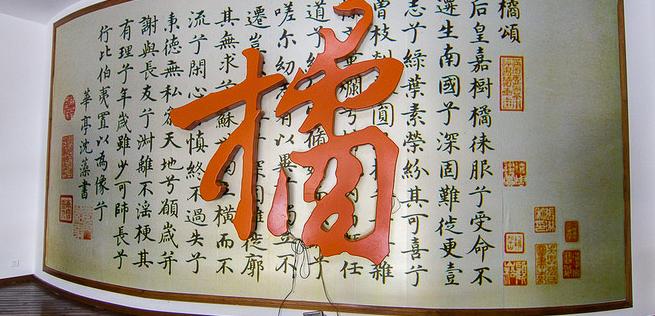 橘頌
后皇嘉樹橘徠服兮受命不
遷生南國兮深固難徙更壹
志兮綠葉素榮紛其可喜兮
曾枝 圓 雜
爛兮 任
道兮 兮
嗟尔幼 有以異 立不
遷豈 深固難徙廓
其無求兮蘇 橫而不
流兮閑心 慎終不過失兮
秉德無私參天地兮願歲并
謝與長友兮淑離不淫梗其
有理兮年歲雖少可師長兮
行比伯夷置以為像兮
華亭沈藻書
橘